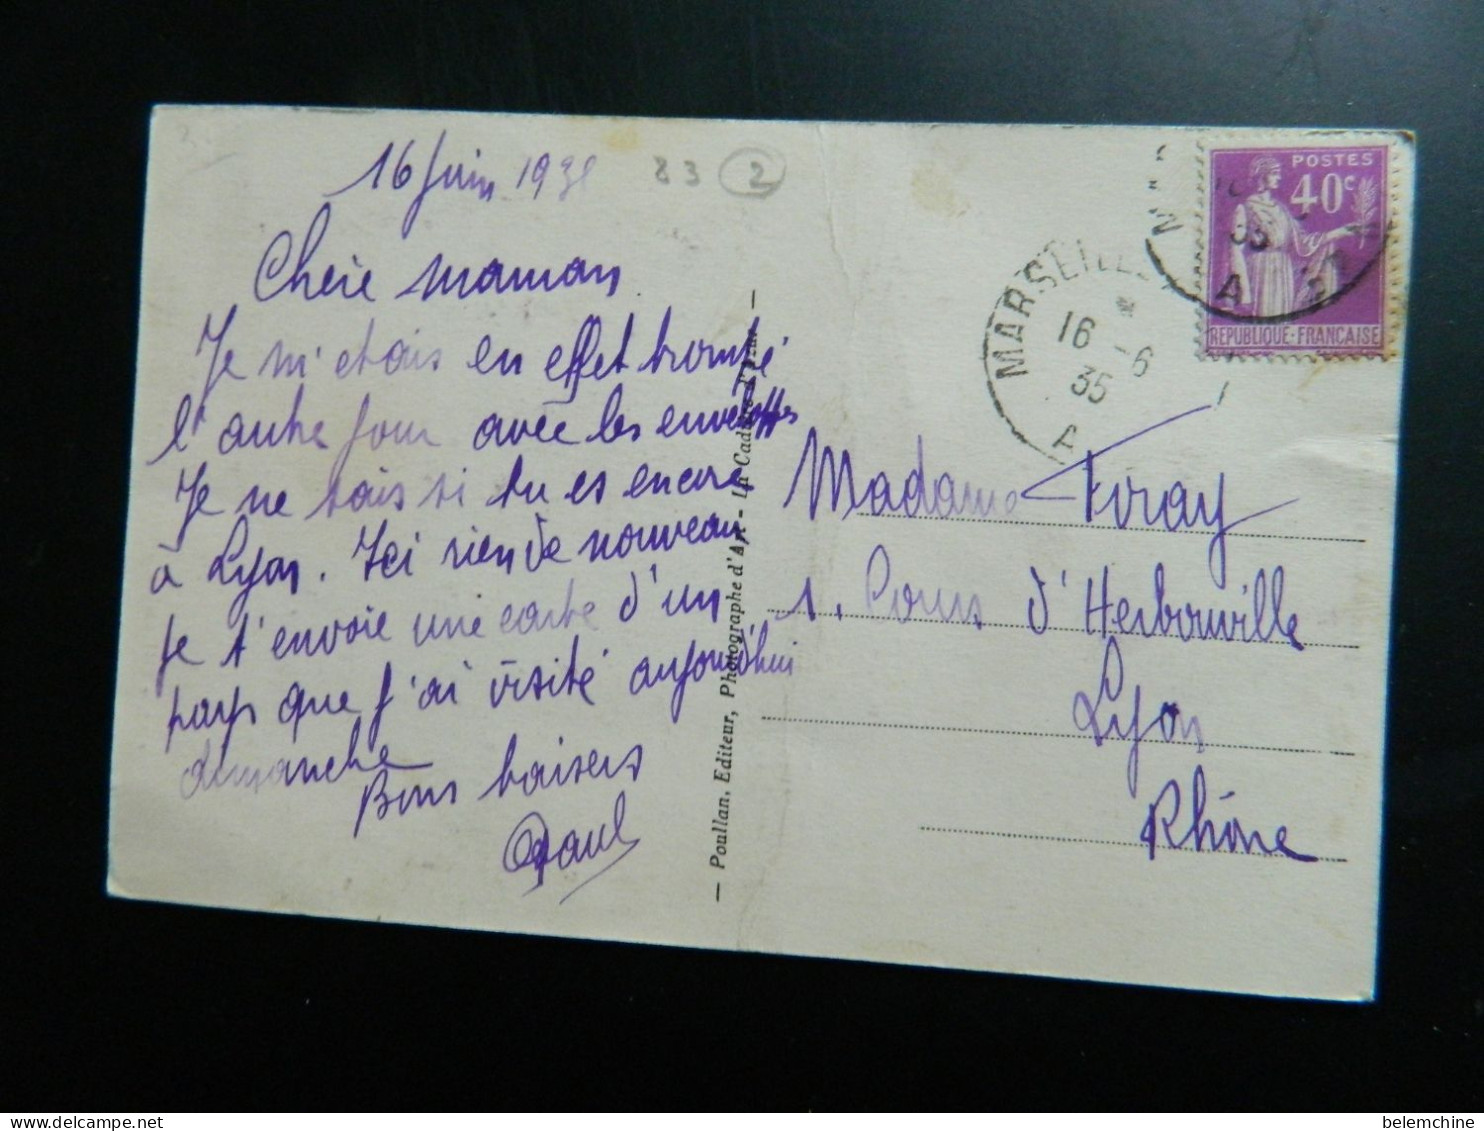 16 juin 1935
83 2
Chère maman
Je m'étais en effet trompé
l'autre jour avec les enveloppes
Je ne sais si tu es encore
à Lyon. Ici rien de nouveau
je t'envoie une carte d'un
pays que j'ai visité aujourd'hui
dimanche
Bons baisers
Paul
— Poullan, Editeur, Photographe d'Art - La Cadière d'Azur —
MARSEILLE
16 - 6
35
A
POSTES
40c
REPUBLIQUE-FRANCAISE
35
A
Madame
1. Cours d'Herbouville
Lyon
Rhône
belemchine